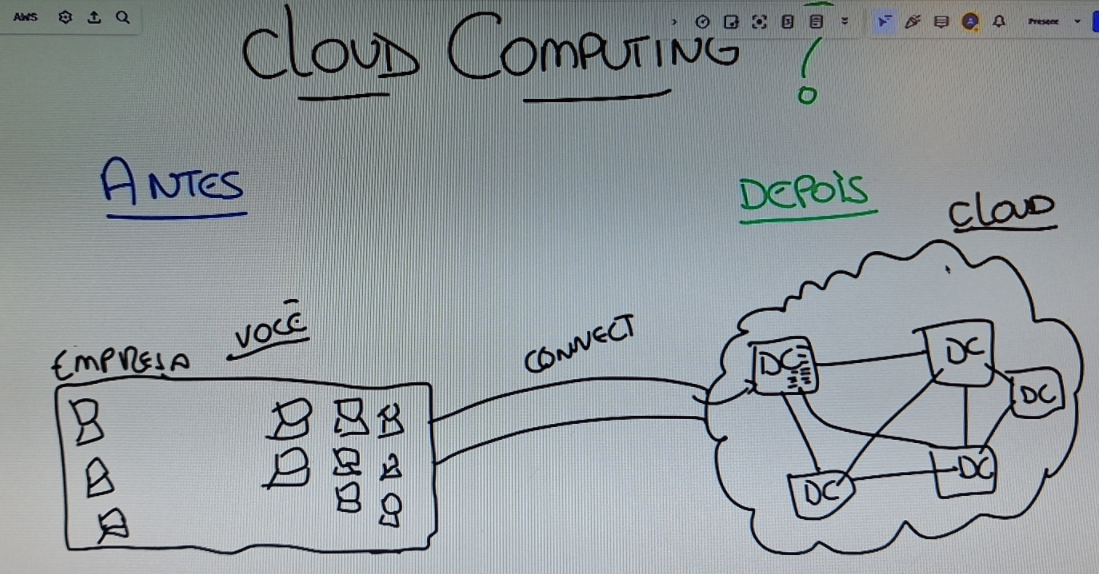 AWS
Present
CLOUD COMPUTING ?
ANTES
DEPOIS
CLOUD
EMPRESA VOCÊ
CONNECT
DC
DC
DC
DC
DC